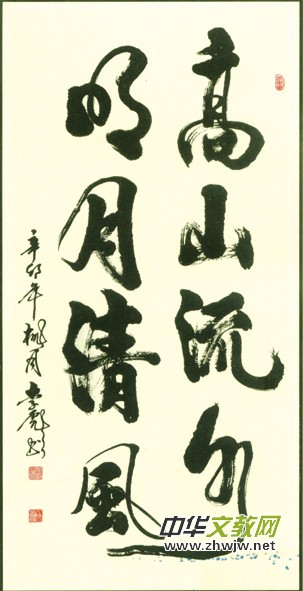 高山流水
明月清风
辛卯年桃月
中华文教网
www.zhwjw.net